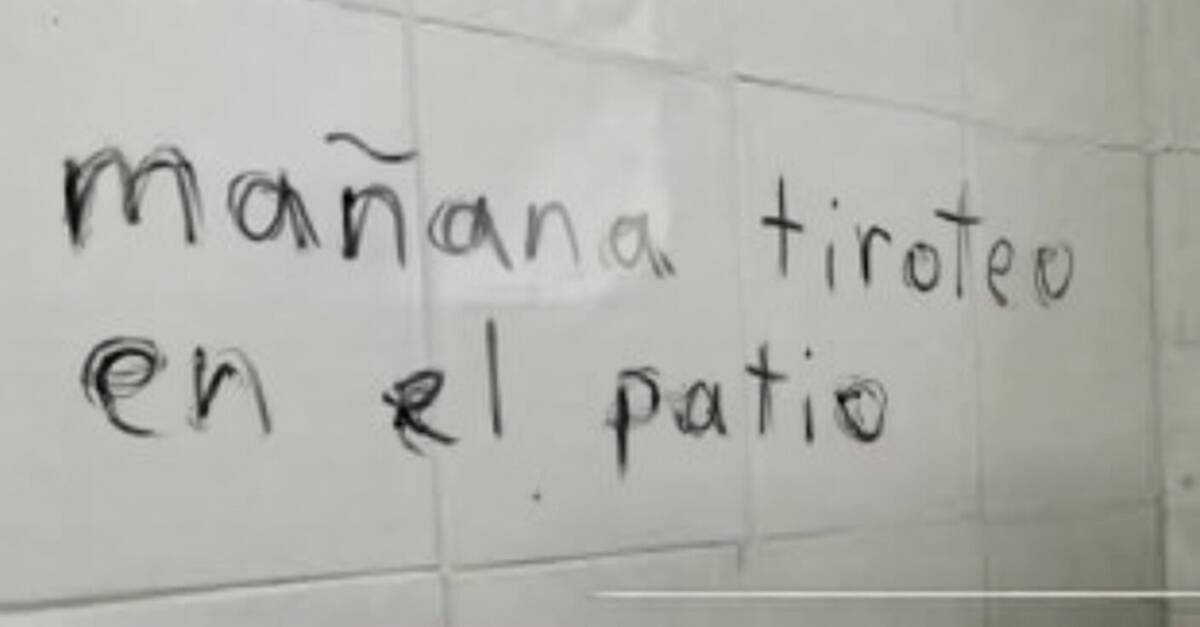 mañana tiroteo
en el patio